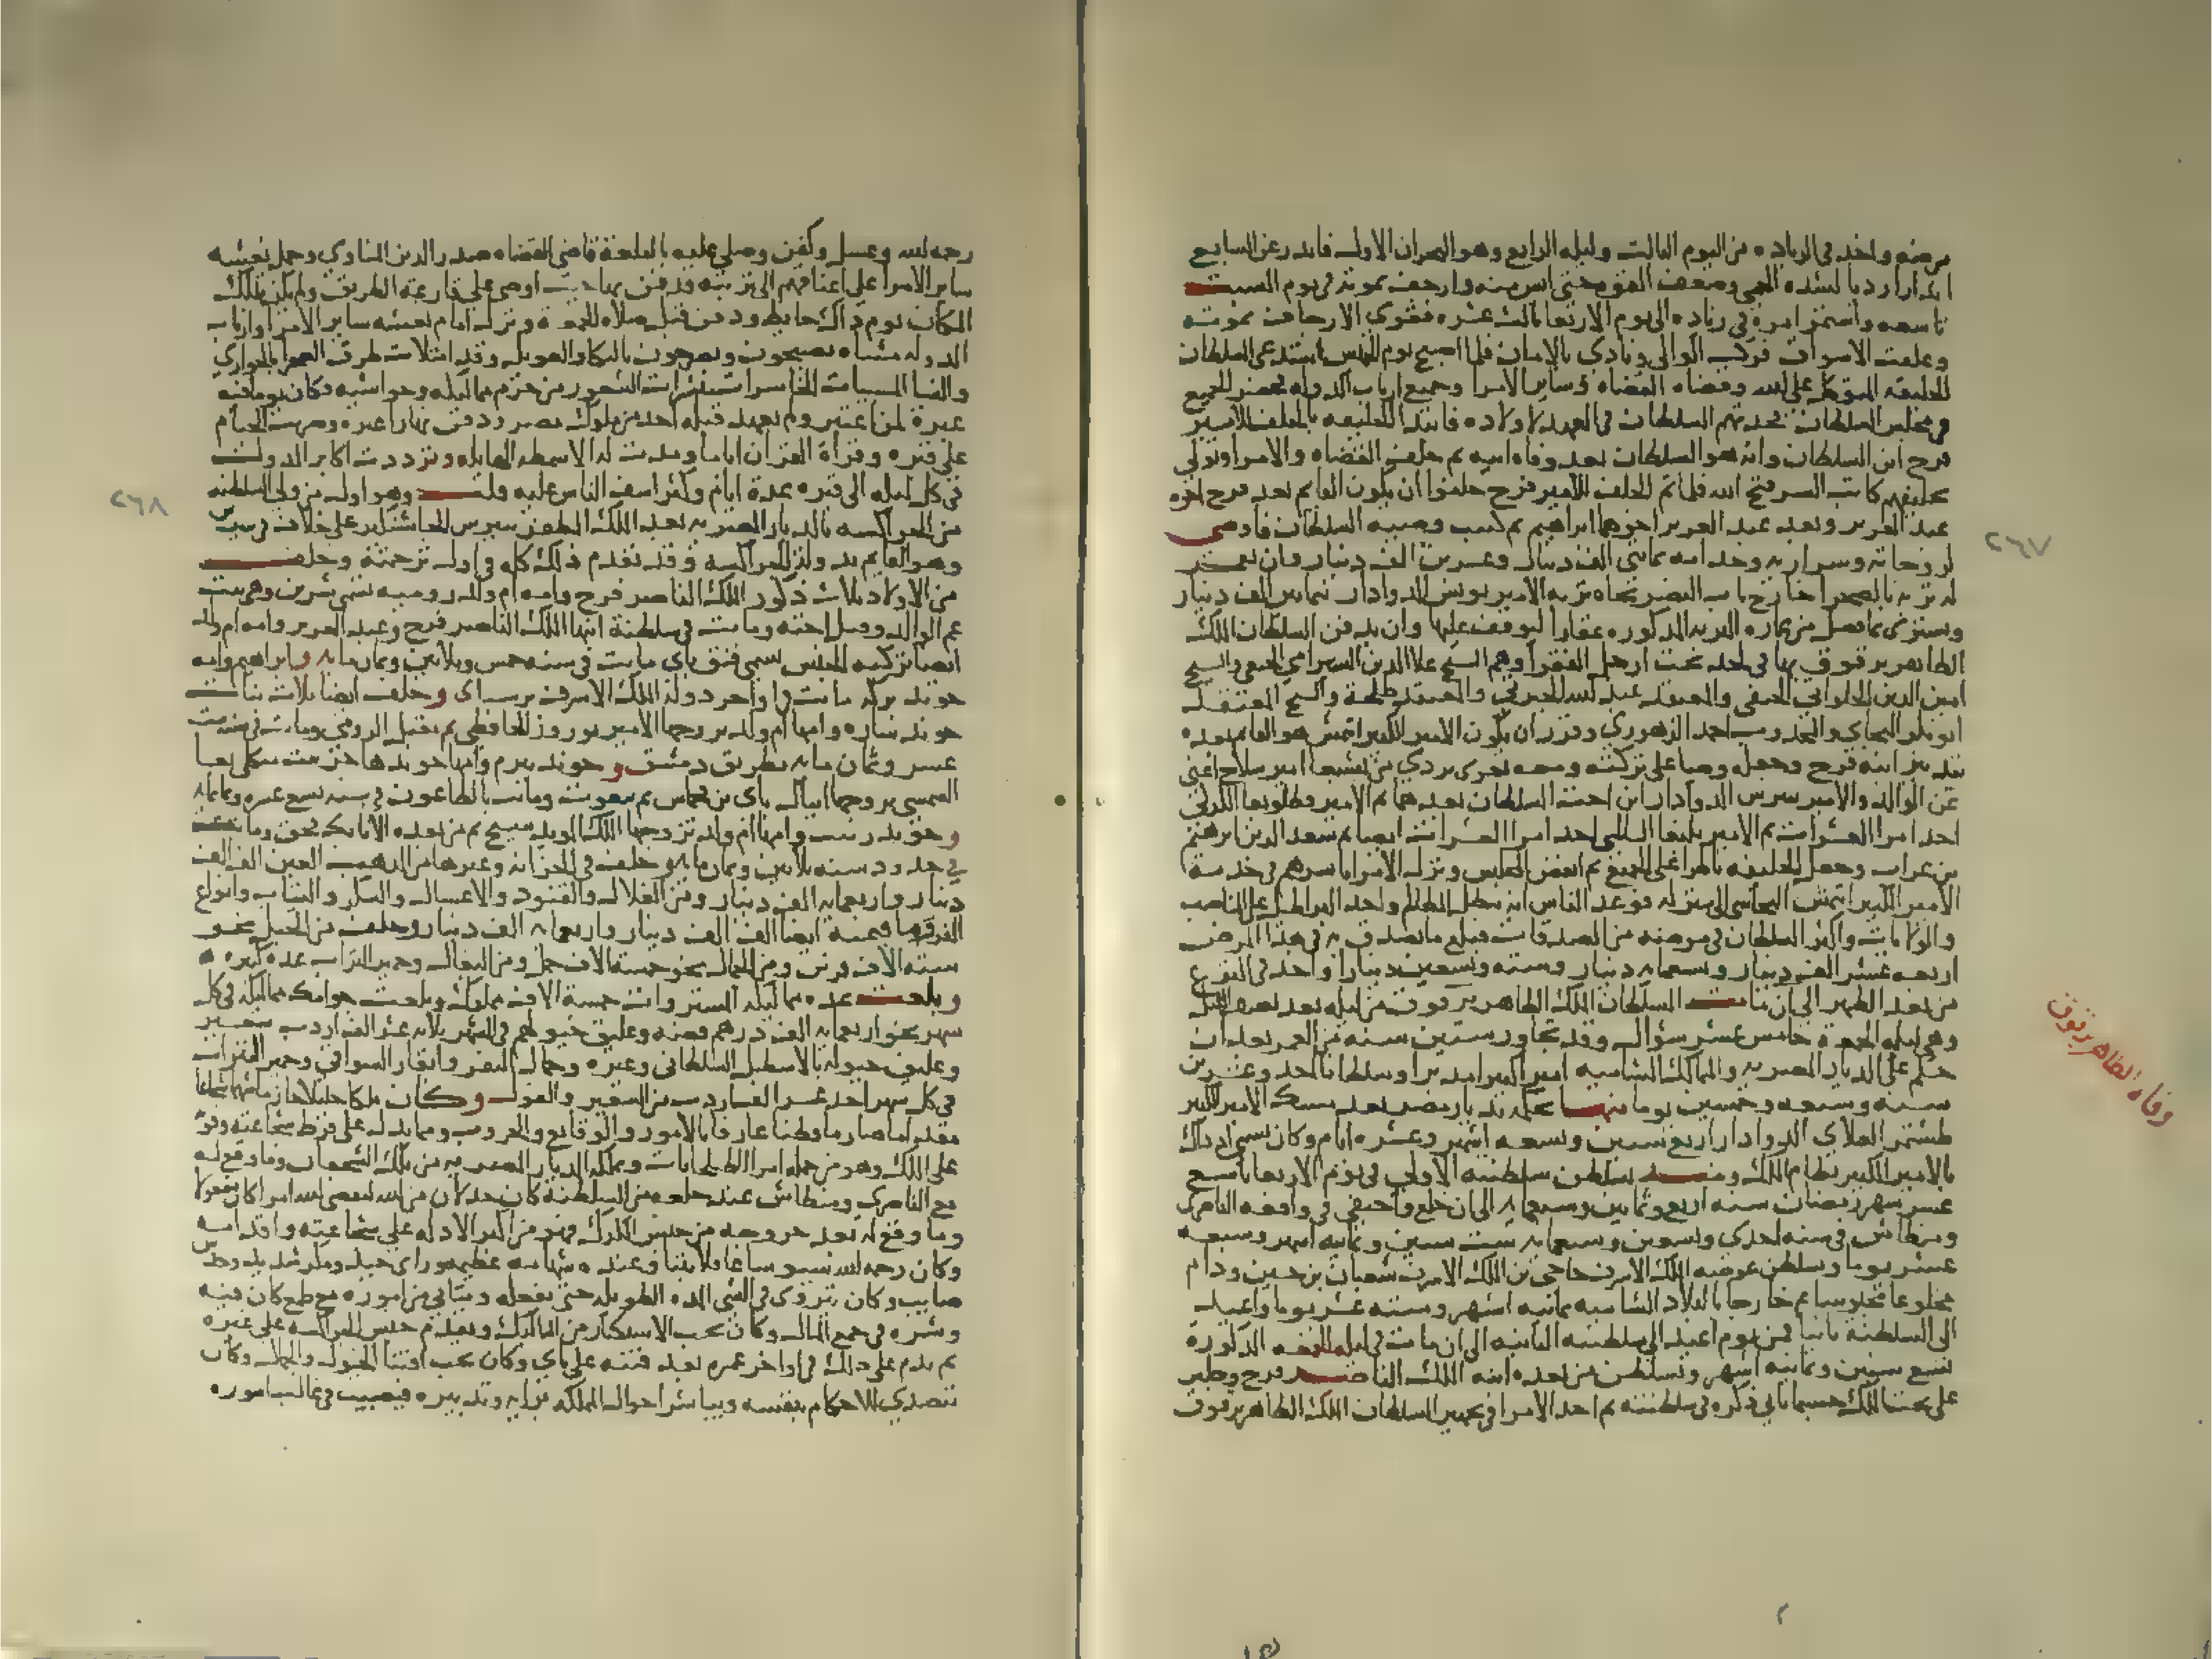 مرضه واخذ في الزياده من اليوم الثالث وليله الرابع وهو البحران الاول فانذر عن السابع
انذارا رديا لشده الحمي وضعف القوه حتى ايس منه وارجف بموته في يوم السبت
تاسعه واستمر امره في زياده الى يوم الاربعا ثالث عشره فقوي الارجاف بموته
وغلقت الاسواق فركب الوالي ونادي بالامان فلما اصبح يوم الخميس استدعي السلطان
الخليفه المتوكل على الله وقضاه القضاه وساير الامرا وجميع ارباب الدوله فحضر الجميع
في مجلس السلطان فحدثهم السلطان في العهد لاولاده فابتدا الخليفه بالحلف للامير
فرج ابن السلطان وانه هو السلطان بعد وفاه ابيه ثم حلف القضاه والامرا وتولي
تحليفهم كاتب السر فتح الله فلما تم الحلف للامير فرج حلفوا ان يكون القايم بعد فرج اخوه
عبد العزيز وبعد عبد العزيز اخوهما ابراهيم ثم كتب وصيه السلطان فاوصى
لزوجاته وسراريه وخدامه بمايتي الف دينار وعشرين الف دينار وان تعمر
له تربه بالصحرا خارج باب النصر تجاه تربه الامير يونس الدوادار بثمانين الف دينار
ويشتري بما فضل من عماره التربه المذكوره عقارا ليوقف عليها وان يدفن السلطان الملك
الظاهر برقوق بها في لحد تحت ارجل الفقرا وهم الشيخ علا الدين السيرامي الحنفي والشيخ
امين الدين الخلواتي الحنفي والمعتقد عبد الله الجبرتي والمعتقد طلحة والشيخ المعتقد
ابو بكر البجاي والمجذوب احمد الزهوري وقرر ان يكون الامير الكبير ايتمش هو القايم بعده
بتدبير ابنه فرج وجعله وصيا على تركته ومعه تغري بردي من بشبغا امير سلاح اعني
عن الوالد والامير بيبرس الدوادار ابن اخت السلطان بعدهما ثم الامير قطلوبغا الكركي
احد امرا العشرات ثم الامير يلبغا السالمي احد امرا العشرات ايضا ثم سعد الدين ابرهيم
بن غراب وجعل الخليفه ناظرا على الجميع ثم انفض المجلس ونزل الامرا باسرهم في خدمة
الامير الكبير ايتمش البجاسي الى منزله فوعد الناس انه يبطل المظالم واخذ البراطيل على المناصب
والولايات واكثر السلطان في مرضه من الصدقات فبلغ ما تصدق به في هذا المرض
اربعه عشر الف دينار وتسعمايه دينار وسته وتسعين دينارا واخذ في النزع
من بعد الظهر الى ان مات السلطان الملك الظاهر برقوق من ليله بعد نصف الليل
وهي ليله الجمعة خامس عشر شوال وقد تجاوز ستين سنه من العمر بعد ان
حكم على الديار المصريه والممالك الشاميه امير اكبير امدبرا وسلطانا احد وعشرين
سنه وسبعه وخمسين يوما منها تحكمه بديار مصر بعد مسك الامير الكبير
طشتمر العلاي الدوادار اربع سنين وتسعه اشهر وعشره ايام وكان يسمي اذ ذاك
بالامير الكبير نظام الملك ومنه سلطن سلطنته الاولى في يوم الاربعا تاسع
عشر شهر رمضان سنه اربع وثمانين وسبعمايه الى ان خلع واختفي في واقعه الناصري
ومنطاش في سنه احدي وتسعين وسبعمايه ست سنين وثمانيه اشهر وسبعه
عشر يوما وتسلطن عوضه الملك الاشرف حاجي بن الملك الاشرف شعبان بن حسين ودام
مخلوعا محبوسا ثم خارجا بالبلاد الشاميه ثمانيه اشهر وسته عشر يوما واعيد
الى السلطنه ثانيا فمن يوم اعيد الى سلطنته الثانيه الى ان مات في ليله الجمعه المذكورة
تسع سنين وثمانيه اشهر وتسلطن من بعده ابنه الملك الناصر فرج وجلس
على تخت الملك حسبما ياتي ذكره في سلطنته ثم اخذ الامرا في تجهيز السلطان الملك الظاهر برقوق
٢٦٧
وفاه الظاهر برقوق
رحمه الله وغسل وكفن وصلي عليه بالقلعة قاضي القضاه صدر الدين المناوي وحمل نعشه
ساير الامرا على اعناقهم الى تربته ودفن بها حيث اوصى على قارعه الطريق ولم يكن بذلك
المكان يوم ذاك حايط ودفن قبل صلاه الجمعة ونزل امام نعشه ساير الامرا وارباب
الدوله مشاه يصيحون ويصرخون بالبكا والعويل وقد امتلات طرق الصحرا بالجواري
والنسا المسبيات الحاسرات منشرات الشعور من حزم مماليكه وحواشيه فكان يوما فيه
عبرة لمن اعتبر ولم يعهد قبله احد من ملوك مصر دفن نهارا غيره وضربت الخيام
على قبره وقراة القران اياما ومدت له الاسمطه الهايله وترددت اكابر الدولة
في كل ليله الى قبره عدة ايام وكثر اسف الناس عليه قلت وهو اول من ولي السلطنه
من الجراكسه بالديار المصريه بعد الملك المظفر بيبرس الجاشنكير على خلاف في بيبرس
وهو القايم بدولة الجراكسه وقد تقدم ذلك كله في اول ترجمته وخلف
من الاولاد ثلاث ذكور الملك الناصر فرج وامه ام ولد روميه تسمي شرين وهي بنت
عم الوالد وقيل اخته وماتت في سلطنة ابنها الملك الناصر فرج وعبد العزيز وامه ام ولد
ايضا تركيه الجنس تسمي قنق باي ماتت في سنه خمس وثلاثين وثمانمايه وابراهيم وامه
خوند بركه ماتت في اواخر دولة الملك الاشرف برسباي وخلف ايضا ثلاث بنات
خوند ساره وامها ام ولد تزوجها الامير نوروز الحافظي ثم مقبل الرومي وماتت في سنه ست
عشر وثمان مايه بطريق دمشق وخوند بيرم وامها خوند هاجر بنت منكلي بغا
الشمسي تزوجها اينال باي بن قجماس ثم بيغوت وماتت بالطاعون في سنه تسع عشره وثمانمايه
وخوند زينب وامها ام ولد تزوجها الملك المويد شيخ ثم من بعده الاتابك قجق وماتت
في حدود سنه ثلاثين وثمان مايه وخلف في الخزانه وغيرها من الذهب العين الف الف
دينار واربعمايه الف دينار ومن الغلال والقنود والاعسال والسكر والثياب وانواع
الفرو ما قيمته ايضا الف الف دينار واربعمايه الف دينار وخلف من الخيل نحو
سته الاف فرس ومن الجمال نحو خمسة الاف جمل ومن البغال وحمير التراب عده كثيره
وبلغت عده مماليكه المشتروات خمسة الاف مملوك وبلغت جوامك مماليكه في كل
شهر نحو اربعمايه الف درهم فضه وعليق خيولهم في الشهر ثلاثه عشر الف اردب شعير
وعليق خيوله بالاسطبل السلطاني وغيره وجمال النفر وابقار السواقي وحمير التراب
في كل شهر احد عشر الف اردب من الشعير والفول وكان ملكا جليلا حازما شهما شجاعا
مقداما صارما فطنا عارفا بالامور والوقايع والحروب ومما يدل على فرط شجاعته وثوبه
على الملك وهو من جمله امرا الطبلخانات وتملكه الديار المصريه من تلك الشجعان وما وقع له
مع الناصري ومنطاش عند خلعه من السلطنة كان خذلان من الله ليقضي الله امرا كان مفعولا
وما وقع له بعد خروجه من حبس الكرك فهو من اكبر الادله على شجاعته واقدامه
وكان رحمه الله سيوسا عاقلا ثبتا وعنده شهامه عظيمه وراي جيد ومكر شديد وحدس
صايب وكان يتروي في الشي المده الطويله حتى يفعله ويتاني في اموره مع طمع كان فيه
وشره في جمع المال وكان يحب الاستكثار من المماليك ويقدم جنس الجراكسه على غيره
ثم ندم على ذلك في اواخر عمره بعد فتنه علي باي وكان يحب اقتنا الخيول والجمال وكان
يتصدي للاحكام بنفسه ويباشر احوال المملكه برايه وتدبيره فيصيب في غالب اموره
٢٦٨